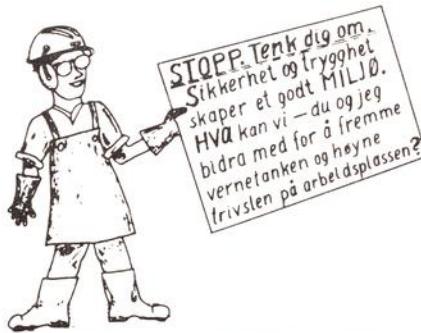 STOPP. Tenk dig om.
Sikkerhet og Trygghet
skaper et godt MILJØ.
HVA kan vi – du og jeg
bidra med for å fremme
vernetanken og høyne
trivslen på arbeidsplassen?